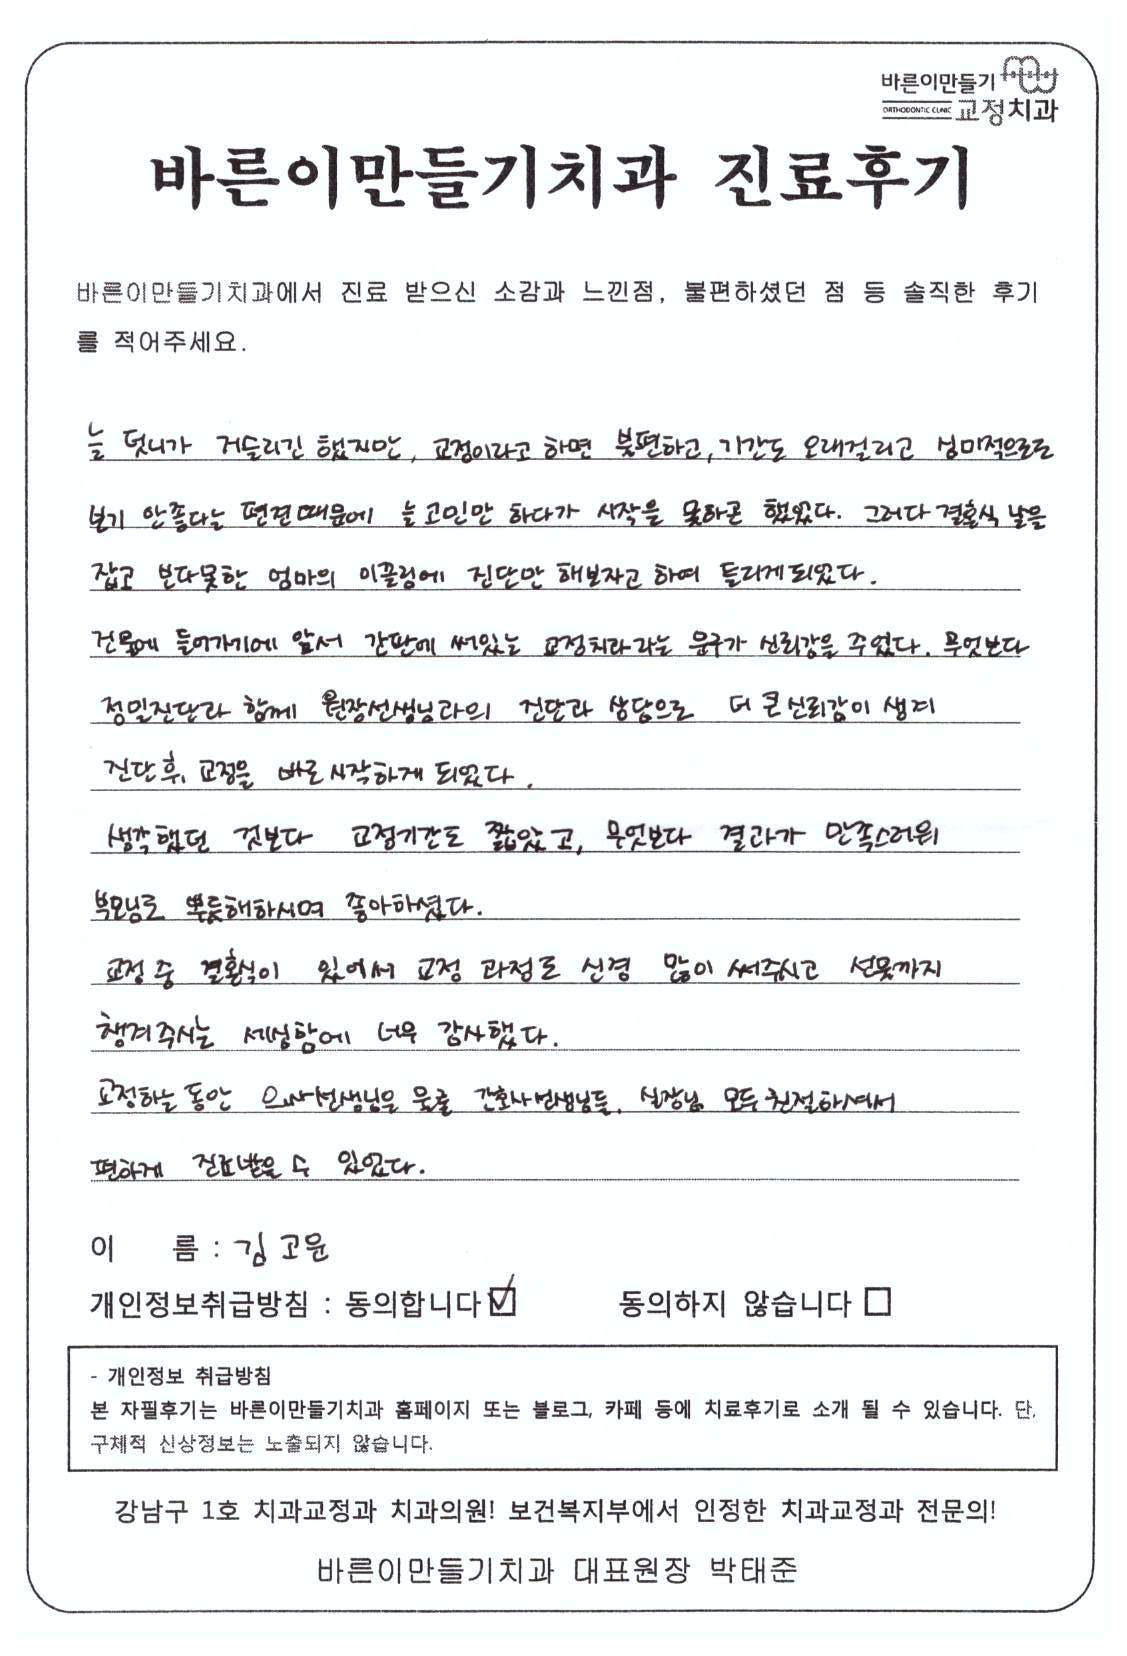 바른이만들기
ORTHODONTIC CLINIC 교정치과
바른이만들기치과 진료후기
바른이만들기치과에서 진료 받으신 소감과 느낀점, 불편하셨던 점 등 솔직한 후기
를 적어주세요.
늘 덧니가 거슬리긴 했지만, 교정이라고 하면 불편하고, 기간도 오래걸리고 심미적으로도
보기 안좋다는 편견때문에 늘 고민만 하다가 시작을 못하곤 했었다. 그러다 결혼식 날을
잡고 보다못한 엄마의 이끌림에 진단만 해보자고 하며 들리게되었다.
건물에 들어가기에 앞서 간판에 써있는 교정치과라는 문구가 신뢰감을 주었다. 무엇보다
정밀진단과 함께 원장선생님과의 진단과 상담으로 더 큰 신뢰감이 생겨
진단 후, 교정을 바로 시작하게 되었다.
생각했던 것보다 교정기간도 짧았고, 무엇보다 결과가 만족스러워
부모님도 뿌듯해하시며 좋아하셨다.
교정 중 결혼식이 있어서 교정 과정도 신경 많이 써주시고 선물까지
챙겨주시는 세심함에 너무 감사했다.
교정하는 동안 의사선생님은 물론 간호사선생님들, 실장님 모두 친절하셔서
편하게 진료받을 수 있었다.
이 름 : 김고운
개인정보취급방침 : 동의합니다 ☑ 동의하지 않습니다 ☐
- 개인정보 취급방침
본 자필후기는 바른이만들기치과 홈페이지 또는 블로그, 카페 등에 치료후기로 소개 될 수 있습니다. 단,
구체적 신상정보는 노출되지 않습니다.
강남구 1호 치과교정과 치과의원! 보건복지부에서 인정한 치과교정과 전문의!
바른이만들기치과 대표원장 박태준